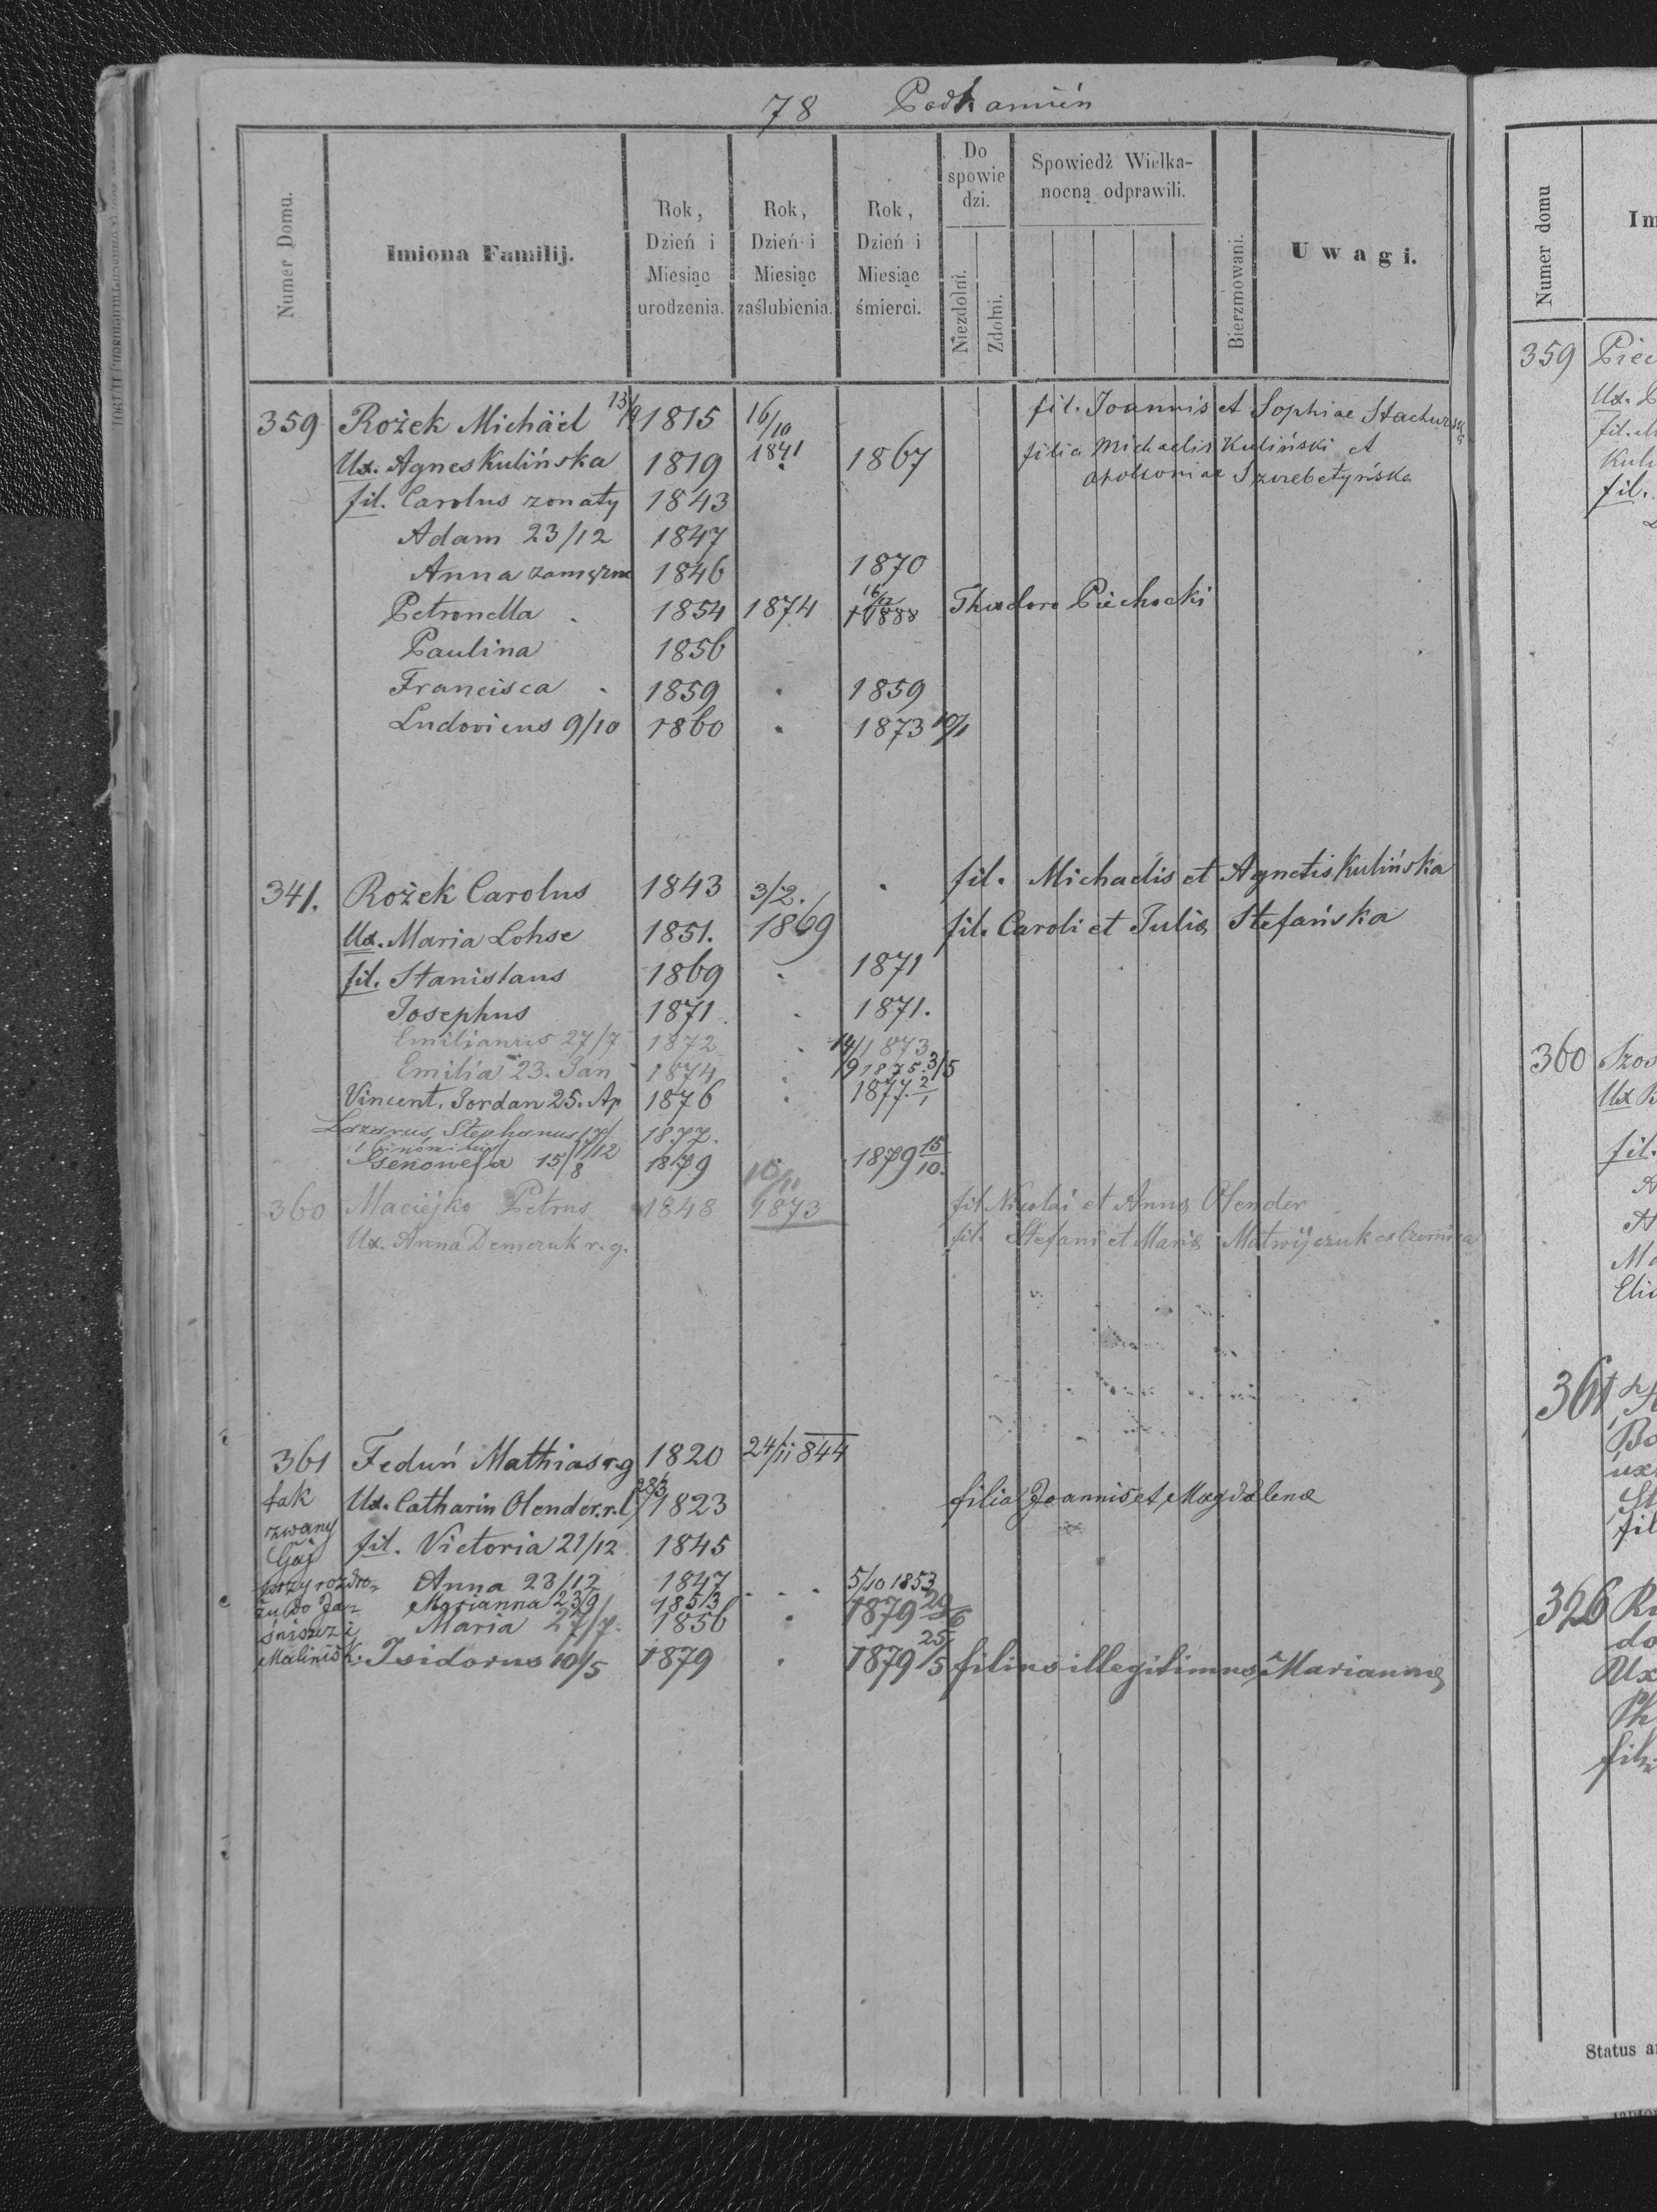 78 Podkamień
Numer Domu.
Imiona Familij.
Rok, Dzień i Miesiąc urodzenia.
Rok, Dzień i Miesiąc zaślubienia.
Rok, Dzień i Miesiąc śmierci.
Do spowiedzi.
Niezdolni.
Zdolni.
Spowiedź Wielkanocną odprawili.
Bierzmowani.
Uwagi.
359 Rożek Michäel 13/9 1815 16/10 1841 fil. Joannis et Sophiae Stachurska
Ux. Agnes Kulińska 1819 1867 filia Michaelis Kuliński et
Apolloniae Szwebetyńska
fil. Carolus zonaty 1843
Adam 23/12 1847
Anna zamężna 1846 1870
Petronella 1854 1874 16/12 †1888 Theodoro Piechocki
Paulina 1856
Francisca 1859 1859
Ludovicus 9/10 1860 1873 10/1
341. Rożek Carolus 1843 3/2. 1869 fil. Michaelis et Agnetis Kulińska
Ux. Maria Lohse 1851. fil. Caroli et Julia Stefańska
fil. Stanislaus 1869 1871
Josephus 1871 1871.
Emilianus 27/7 1872 14/1 873
Emilia 23. Jan 1874 19 1875. 3/5
Vincent. Jordan 25. Ap 1876 1877. 2/1
Lazarus Stephanus 17/12 1877.
Genowefa 15/8 1879 1879 15/10.
360 Maciejko Petrus 1848 10/11 1873 fil Nicolai et Anna Olender
Ux. Anna Demczuk r. g. fil. Stefani et Maria Matwijczuk
361 Feduń Mathias r. g 1820 24/11 844
tak Ux. Catharin Olender r. l 28/3 1823 filia Joannis et Magdalena
zwany
Gaj fil. Victoria 21/12 1845
przy rozdro- Anna 23/12 1847 5/10 1853
żu do Ja- Marianna 23/9 1853 1879 29/6
śniszcz i Maria 27/7. 1856
Malinisk. Isidorus 10/5 1879 †1879 25/5 filius illegitimus Marianna
Numer domu
Im
359 Piec
Ux.
fil.
Kuli
fil.
360 Szos
Ux B
fil.
A
Ma
Elia
361
Bo
ux
St
fil
326 Ru
do
Ux
fil
Status a